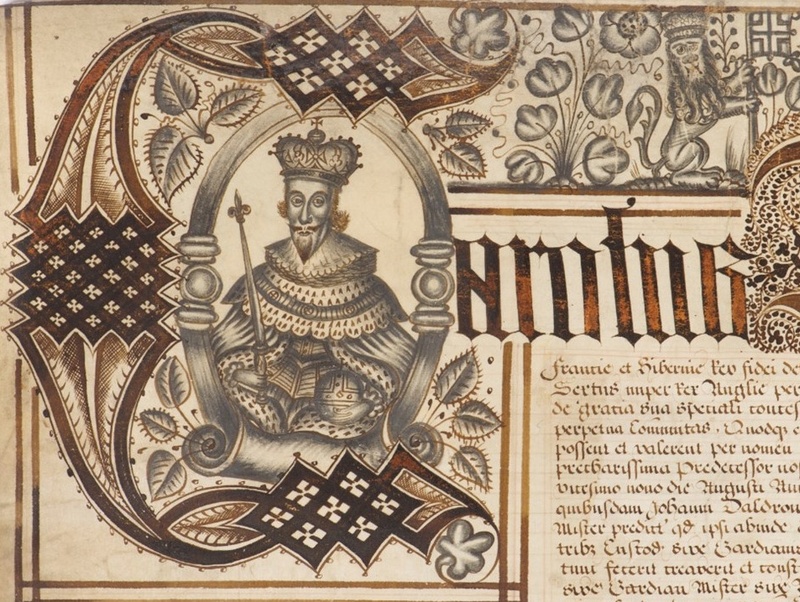 Carolus
Francie et Hibernie Rex fidei de
Sextus nuper Rex Anglie per
de gratia sua speciali concess
perpetua Communitas. Quodq e
possent et valerent per nomen
precharissima Predecessor no
vicesimo nono die Augusti
quibusdam Johanni
Mister predict' qd ipsi abinde
tribz Custod sive Gardian
fecerit creaverit et const
sive Gardian Mister sive